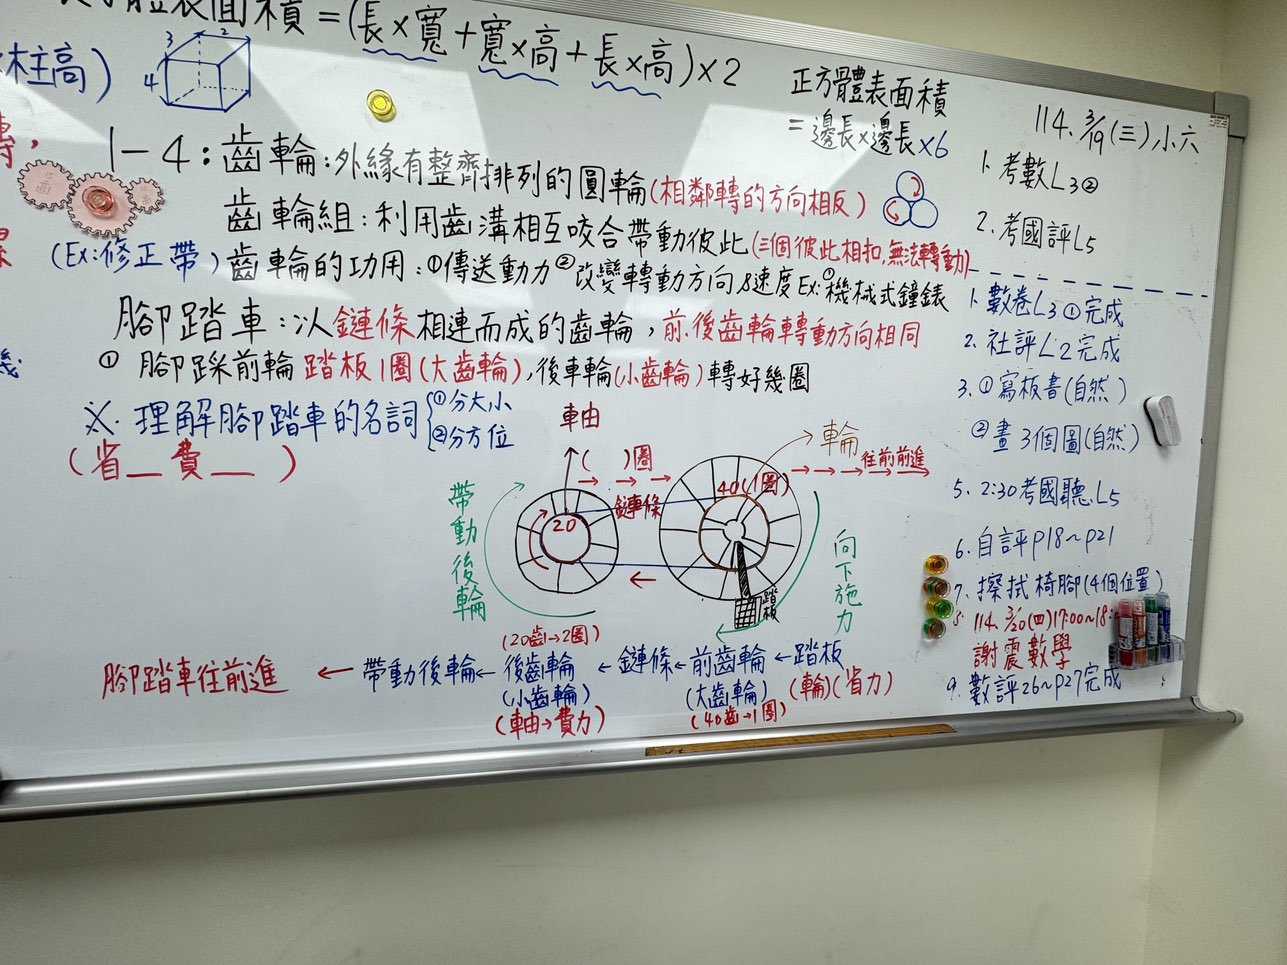 體表面積=(長×寬+寬×高+長×高)×2
柱高)
3 2
4
正方體表面積
=邊長×邊長×6
1-4:齒輪:外緣有整齊排列的圓輪(相鄰轉的方向相反)
齒輪組:利用齒溝相互咬合帶動彼此(三個彼此相扣,無法轉動)
(Ex:修正帶)齒輪的功用:①傳送動力②改變轉動方向&速度Ex:①機械式鐘錶
腳踏車:以鏈條相連而成的齒輪,前、後齒輪轉動方向相同
① 腳踩前輪踏板1圈(大齒輪),後車輪(小齒輪)轉好幾圈
※.理解腳踏車的名詞
①分大小
②分方位
(省__費__)
車由
( )圈
→ → →
鏈條
輪
→→→往前前進→
20
40(1圈)
帶動後輪
向下施力
踏板
(20齒→2圈)
腳踏車往前進←帶動後輪←後齒輪←鏈條←前齒輪←踏板
(小齒輪)
(大齒輪)
(輪)(省力)
(車由→費力)
(40齒→1圈)
114.3/19(三)小六
1.考數L3②
2.考國評L5
1.數卷L3①完成
2.社評L2完成
3.①寫板書(自然)
②畫3個圖(自然)
5.2:30考國聽L5
6.自評P18~P21
7.擦拭椅腳(4個位置)
8.114.3/20(四)17:00~18:
謝震數學
9.數評26~P27完成